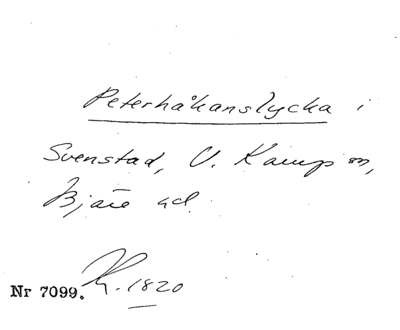 Peterhåkanslycka i
Svenstad, V. Karup sn,
Bjäre hd.
Nr 7099. K. 1820